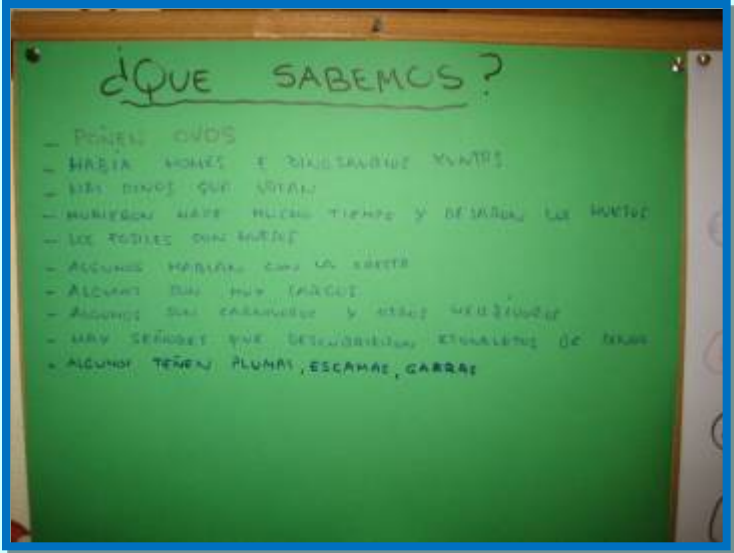 ¿QUE SABEMOS?
- POÑEN OVOS
- HABIA HOMES E DINOSAURIOS XUNTOS
- HAI DINOS QUE VOLAN
- MURIERON HACE MUCHO TIEMPO Y DEJARON LOS HUESOS
- LOS FOSILES SON HUESOS
- ALGUNOS HABLAN CON LA CRESTA
- ALGUNOS SON MUY LARGOS
- ALGUNOS SON CARNIVOROS Y OTROS HERBIVOROS
- HAY SEÑORES QUE DESCUBRIERON ESQUELETOS DE DINOS
- ALGUNOS TEÑEN PLUMAS, ESCAMAS, GARRAS